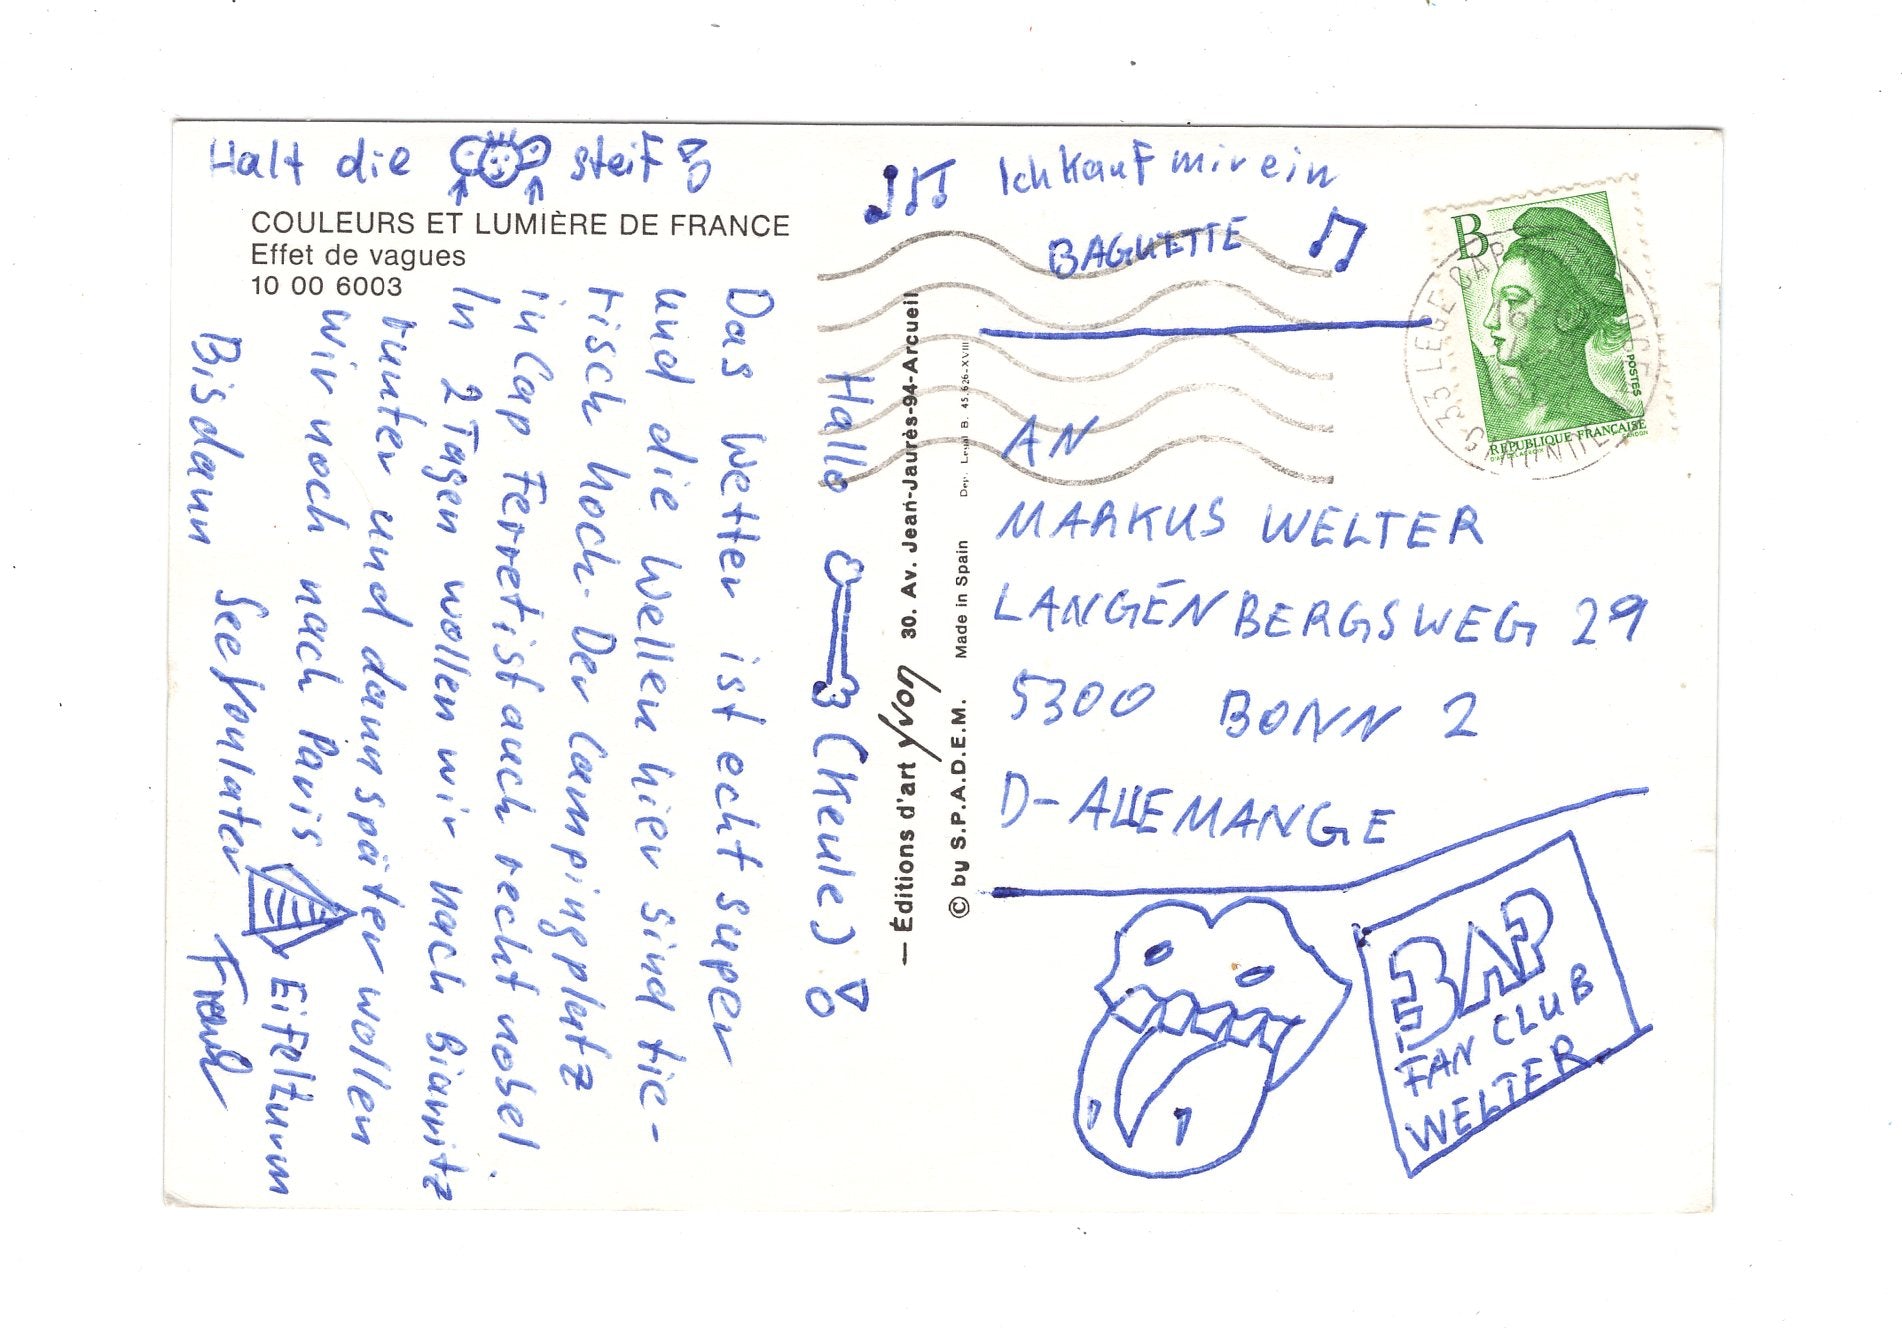 Halt die steif!
COULEURS ET LUMIÈRE DE FRANCE
Effet de vagues
10 00 6003
Hallo (Keule)!
Das Wetter ist echt super
und die Wellen hier sind tie-
risch hoch. Der Campingplatz
in Cap Ferret ist auch recht nobel.
In 2 Tagen wollen wir nach Biarritz
runter und dann später wollen
wir noch nach Paris Eifelturm
Bis dann See you later Frank
— Éditions d'art Yvon 30. Av. Jean-Jaurès-94-Arcueil
© by S.P.A.D.E.M. Made in Spain Dep. Legal B. 45.626-XVIII
Ich kauf mir ein
BAGUETTE
B
POSTES
REPUBLIQUE FRANÇAISE
33 LEGE CAP
AN
MARKUS WELTER
LANGENBERGSWEG 29
5300 BONN 2
D-ALLEMANGE
BAP
FAN CLUB
WELTER